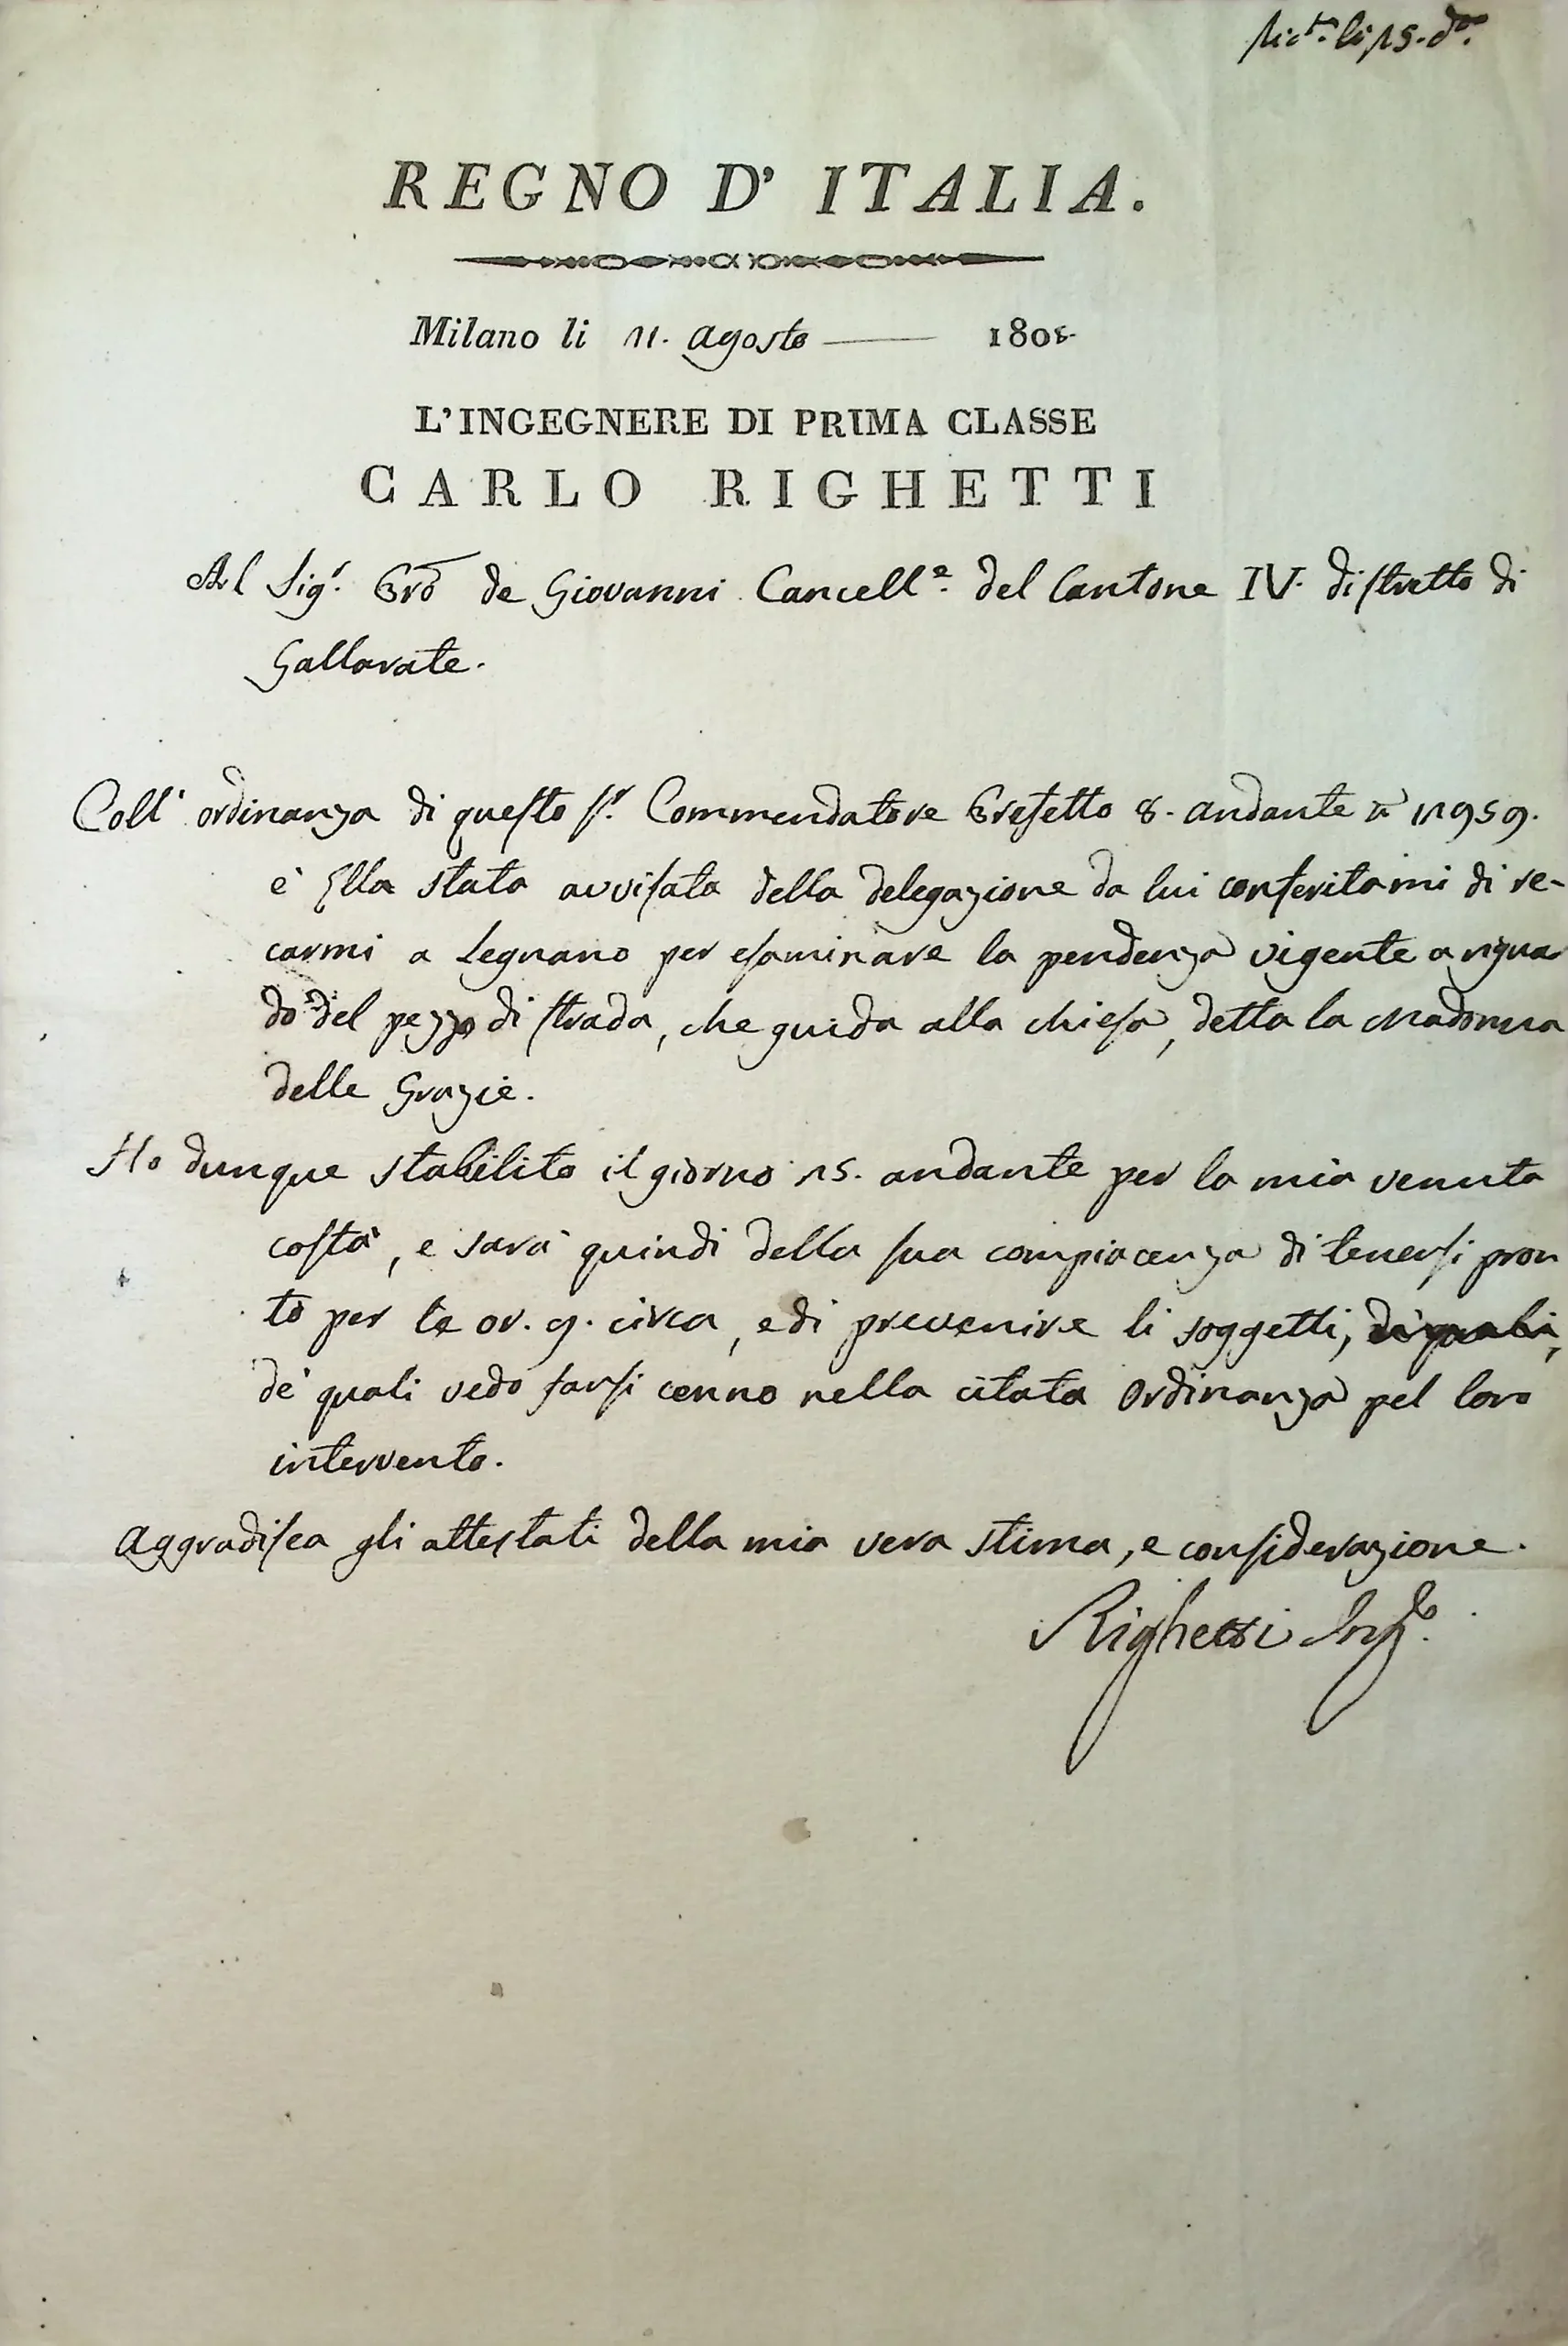 Ric.ta li 15. d.o
REGNO D' ITALIA.
Milano li 11. Agosto 180
L'INGEGNERE DI PRIMA CLASSE
CARLO RIGHETTI
Al Sig.r de Giovanni Cancell.e del Cantone IV. distretto di
Gallarate.
Coll' ordinanza di questo S.r Commendatore Prefetto 8. andante n.° 11959.
è Ella stata avvisata della delegazione da lui conferitami di re-
carmi a Legnano per esaminare la pendenza vigente a riguar
do del pezzo di strada, che guida alla chiesa, detta la Madonna
delle Grazie.
Ho dunque stabilito il giorno 15. andante per la mia venuta
costà, e sarà quindi della sua compiacenza di tenersi pron
to per le or. 9. circa, e di prevenire li soggetti,
de' quali vedo farsi cenno nella citata Ordinanza pel loro
intervento.
Aggradisca gli attestati della mia vera stima, e considerazione.
Righetti Ing.e